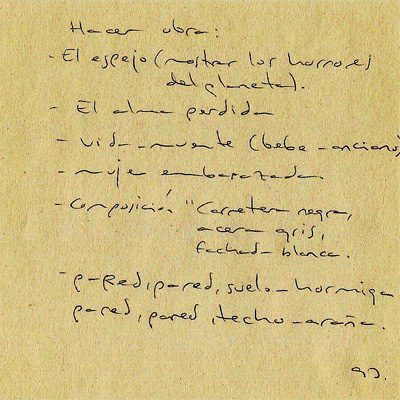 Hacer obra:
- El espejo (mostrar los horrores
del planeta).
- El alma perdida
- vida-muerte (bebe-anciano)
- mujer embarazada
- Composición "Carretera negra,
acera gris,
fachada blanca.
- pared, pared, suelo-hormiga
pared, pared, techo-araña.